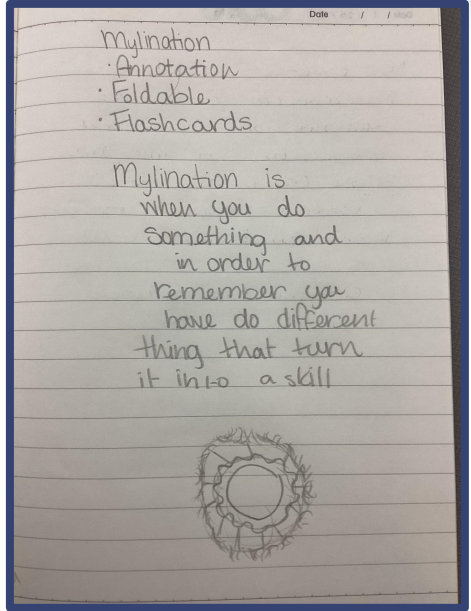 Date / /
Mylination
· Annotation
· Foldable
· Flashcards
Mylination is
when you do
something and
in order to
remember you
have do different
thing that turn
it into a skill